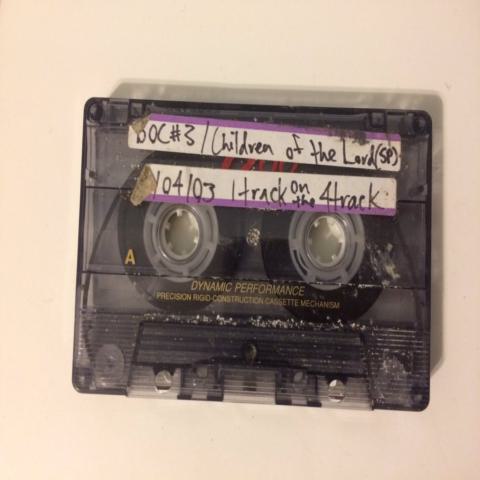 DOC#3/Children of the Lord(SP)
04/03 1track on the 4track
A
DYNAMIC PERFORMANCE
PRECISION RIGID-CONSTRUCTION CASSETTE MECHANISM